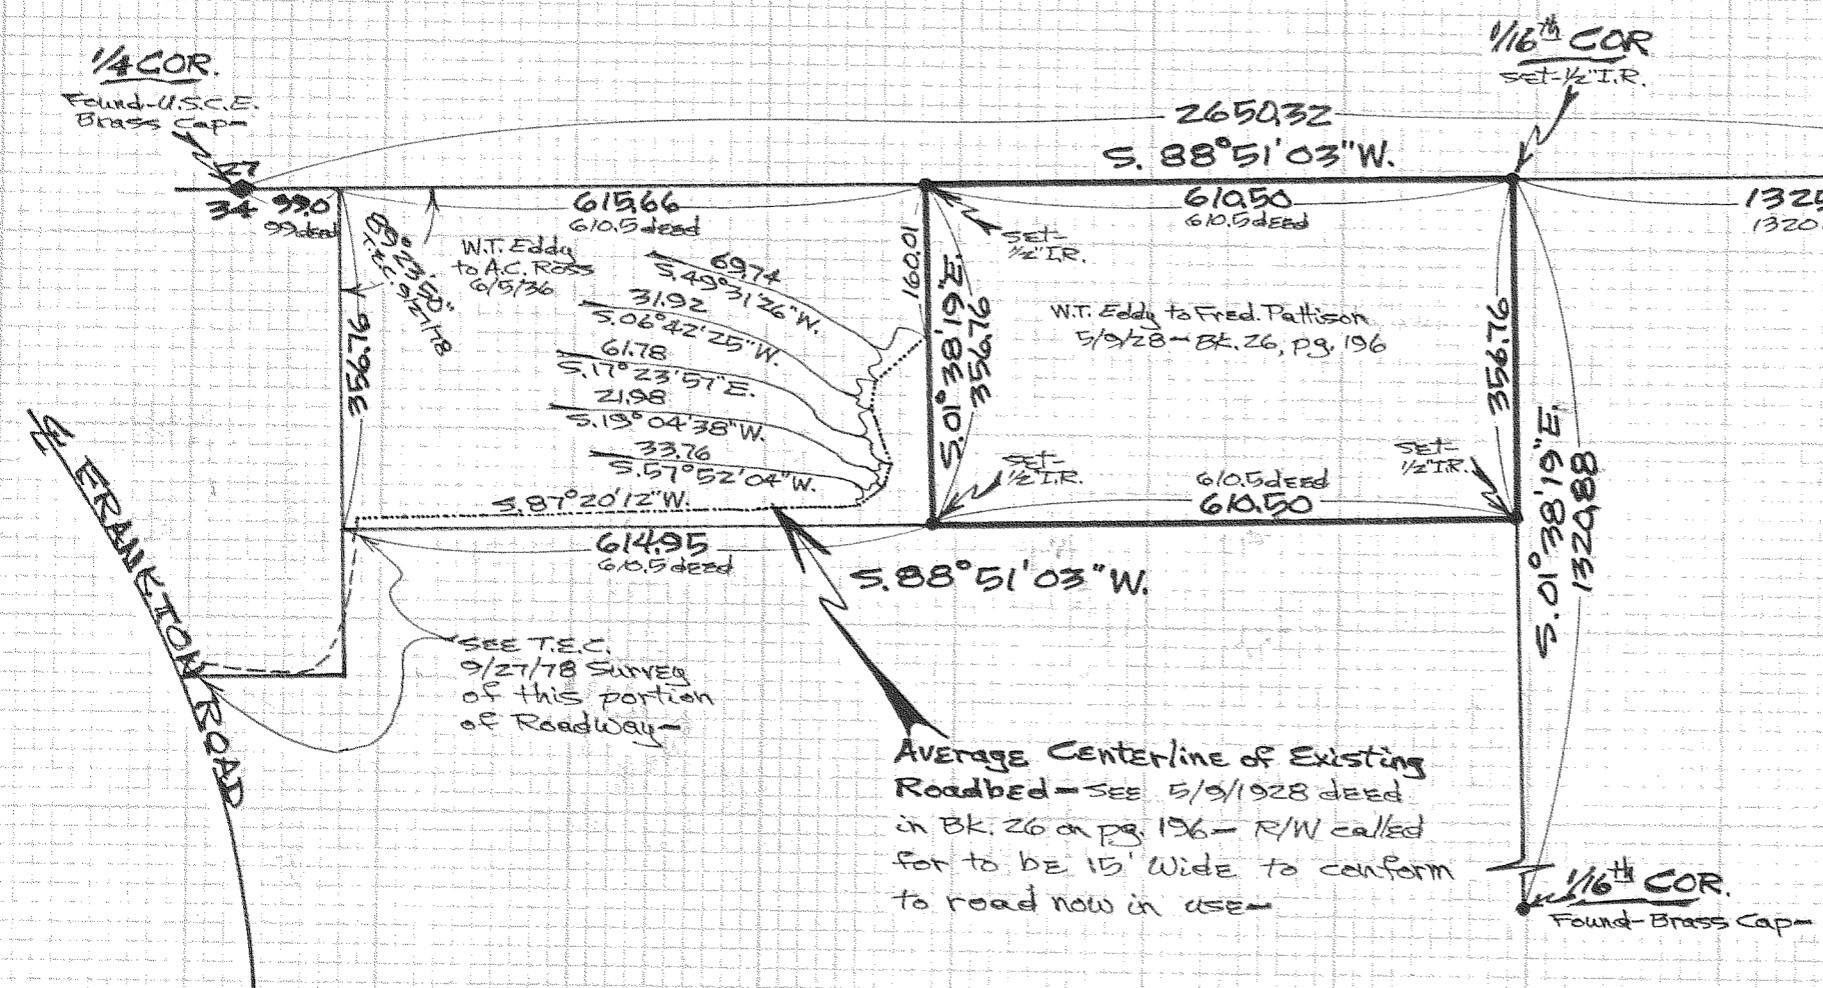 1/4 COR.
Found-U.S.C.E.
Brass Cap-
27
34
99.0
99 deed
1/16th COR
set-1/2" I.R.
2650.32
S. 88°51'03"W.
615.66
610.5 deed
610.50
610.5 deed
1320
89°23'50"
T.E.C. 9/27/78
356.76
W.T. Eddy
to A.C. Ross
6/5/36
69.74
S.49°31'26"W.
31.92
S.06°42'25"W.
61.78
S.17°23'57"E.
21.98
S.19°04'38"W.
33.76
S.57°52'04"W.
S.87°20'12"W.
160.01
S.01°38'19"E.
356.76
set-
1/2" I.R.
W.T. Eddy to Fred. Pattison
5/9/28-Bk. 26, pg. 196
356.76
set-
1/2" I.R.
set-
1/2" I.R.
610.5 deed
610.50
S.01°38'19"E.
1320.88
614.95
610.5 deed
S.88°51'03"W.
℄ FRANKTON ROAD
SEE T.E.C.
9/27/78 Survey
of this portion
of Roadway-
Average Centerline of Existing
Roadbed-SEE 5/9/1928 deed
in Bk. 26 on pg. 196- R/W called
for to be 15' Wide to conform
to road now in use-
1/16th COR.
Found-Brass Cap-